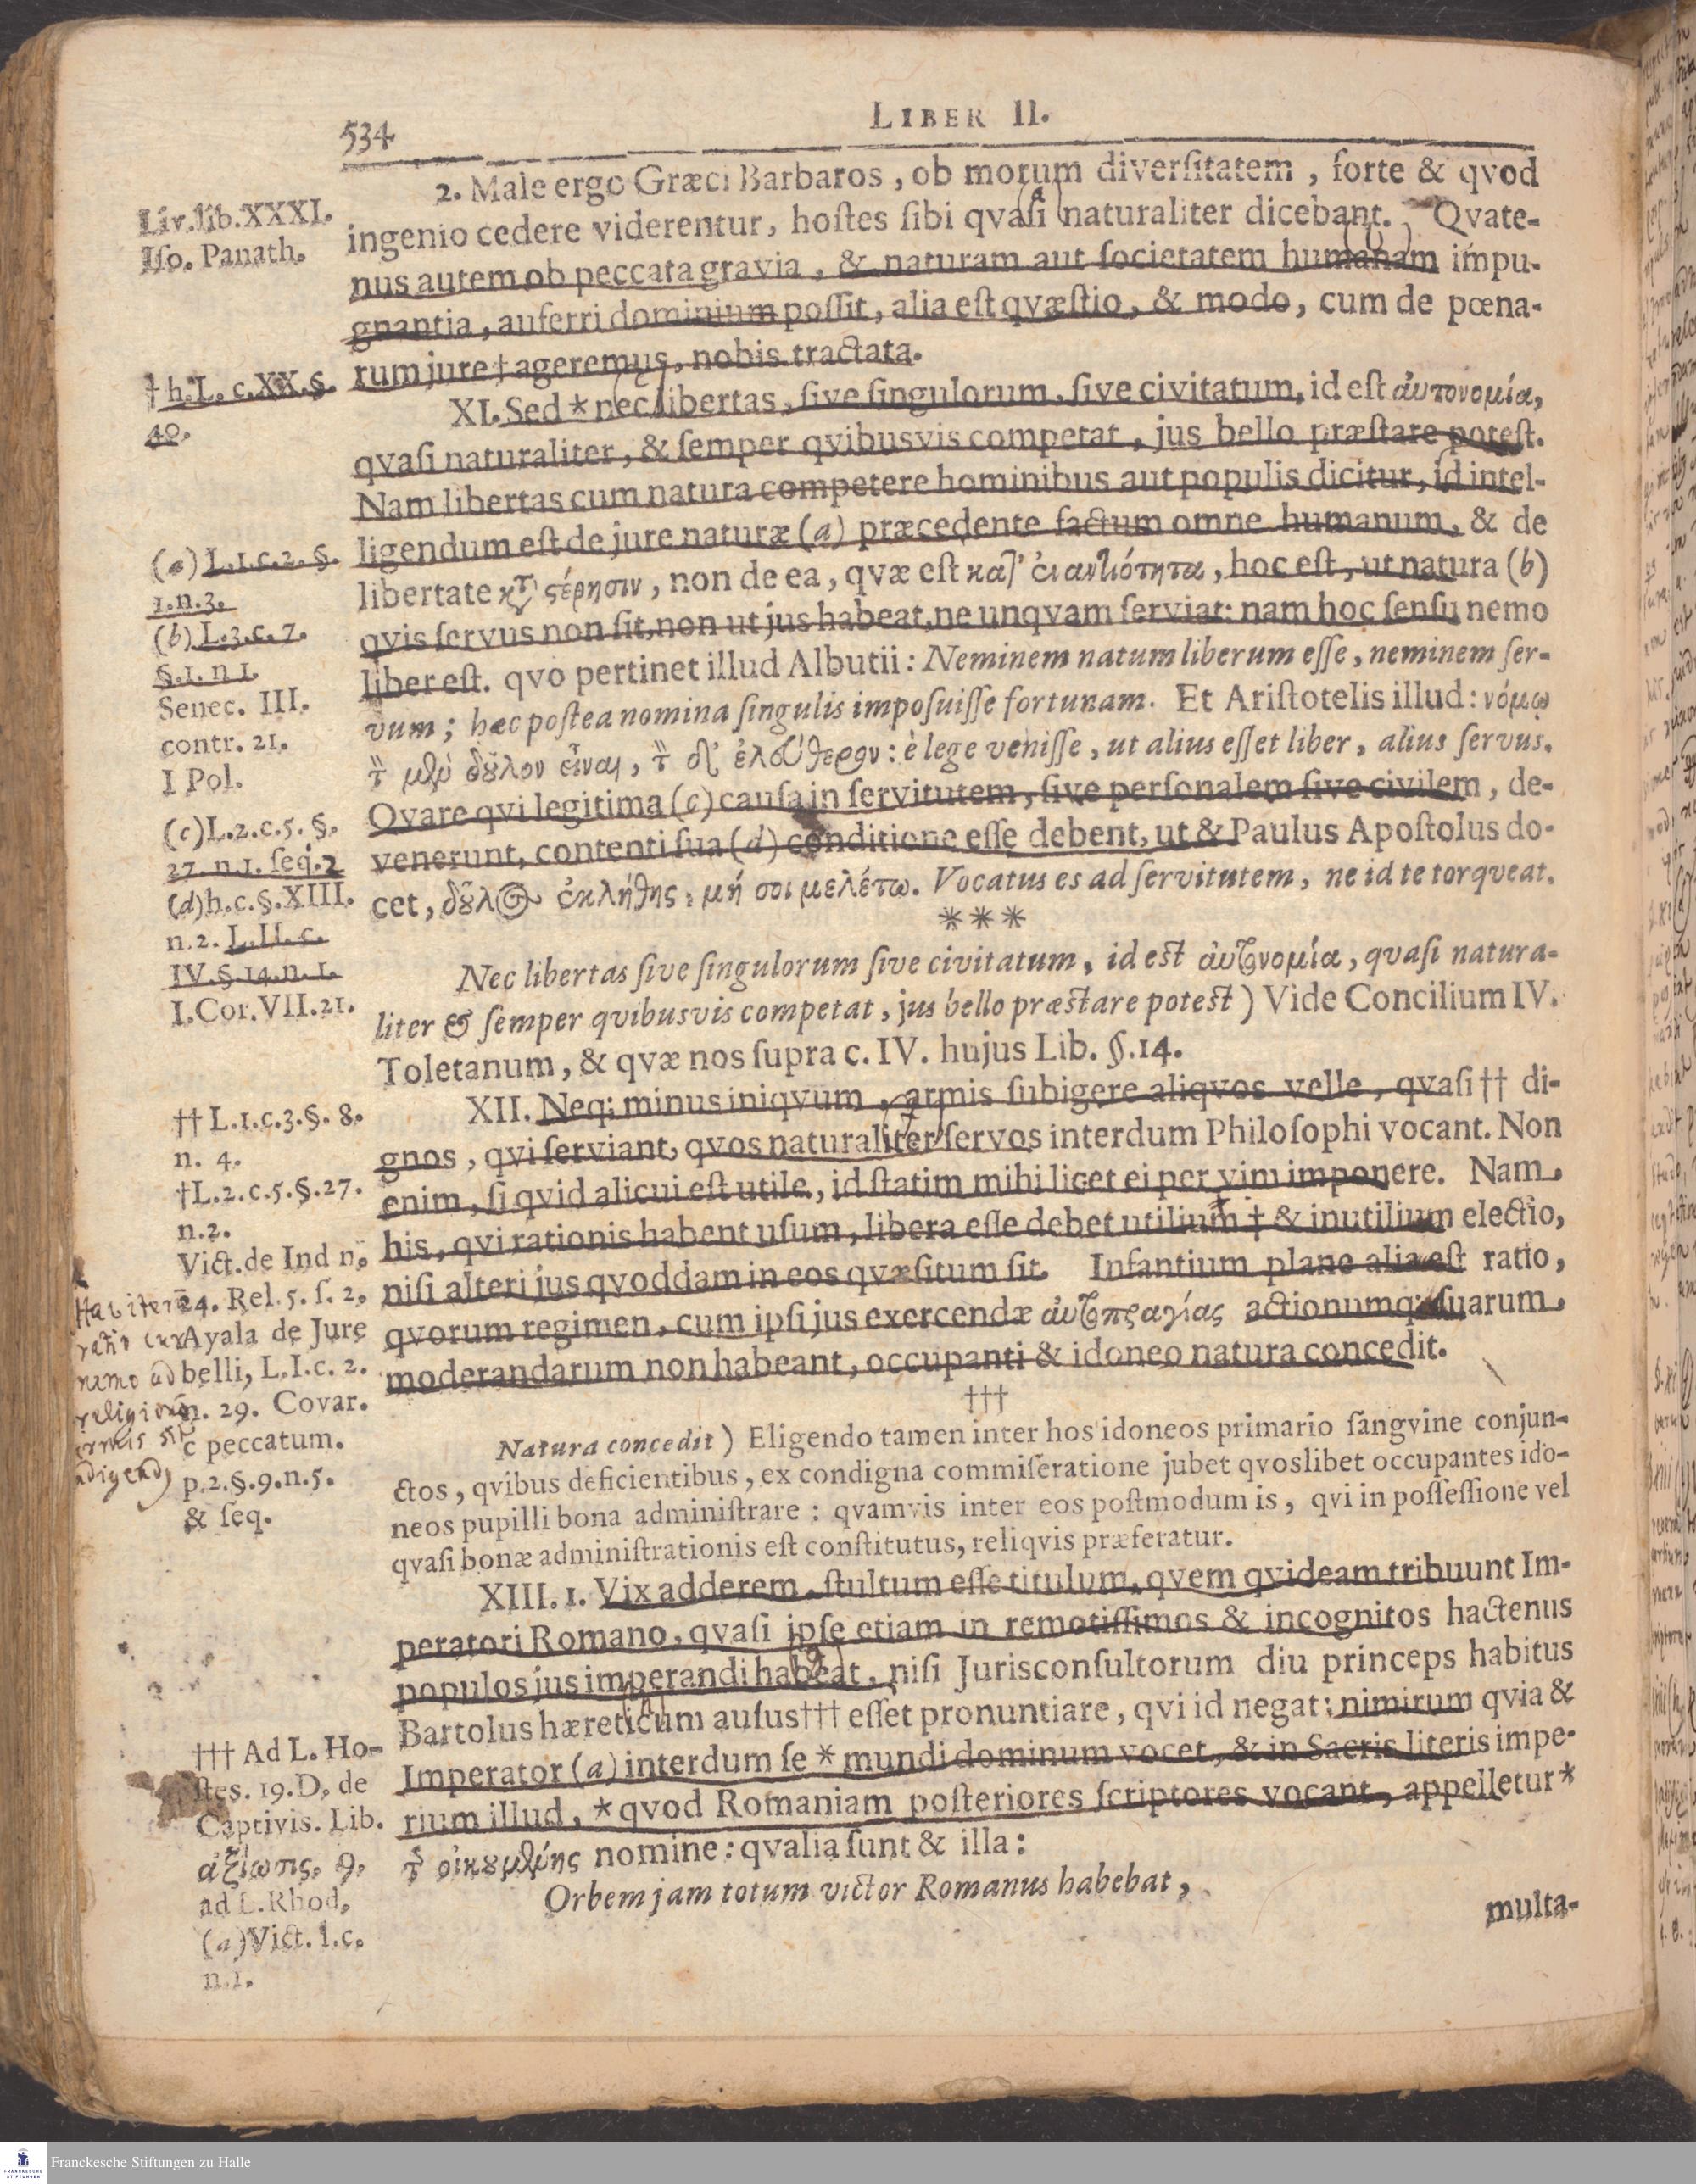 534
LIBER II.
2. Male ergo Græci Barbaros, ob morum diverſitatem, forte & qvod
ingenio cedere viderentur, hoſtes ſibi qvaſi naturaliter dicebant. Qvate-
nus autem ob peccata gravia, & naturam aut ſocietatem humanam impu-
gnantia, auferri dominium poſſit, alia eſt qvæſtio, & modo, cum de pœna-
rum jure † ageremus, nobis tractata.
XI. Sed * nec libertas, ſive ſingulorum, ſive civitatum, id eſt αὐτονομία,
qvaſi naturaliter, & ſemper qvibusvis competat, jus bello præſtare poteſt.
Nam libertas cum natura competere hominibus aut populis dicitur, id intel-
ligendum eſt de jure naturæ (a) præcedente factum omne humanum, & de
libertate κτ̀ ϛέρησιν, non de ea, qvæ eſt κατ' ἐναντιότητα, hoc eſt, ut natura (b)
qvis ſervus non ſit, non ut jus habeat, ne unqvam ſerviat: nam hoc ſenſu nemo
liber eſt. qvo pertinet illud Albutii: Neminem natum liberum eſſe, neminem ſer-
vum; hæc poſtea nomina ſingulis impoſuiſſe fortunam. Et Ariſtotelis illud: νόμῳ
τ̀ μὲν δȣ͂λον εἶναι, τ̀ δ' ἐλεύθερον: è lege veniſſe, ut alius eſſet liber, alius ſervus.
Qvare qvi legitima (c) cauſa in ſervitutem, ſive perſonalem ſive civilem, de-
venerunt, contenti ſua (d) conditione eſſe debent, ut & Paulus Apoſtolus do-
cet, δȣ͂λος ἐκλήθης, μή σοι μελέτω. Vocatus es ad ſervitutem, ne id te torqveat.
***
Nec libertas ſive ſingulorum ſive civitatum, id eſt αὐτονομία, quaſi natura-
liter & ſemper quibusvis competat, jus bello præſtare poteſt) Vide Concilium IV.
Toletanum, & qvæ nos ſupra c. IV. hujus Lib. §. 14.
XII. Neq; minus iniqvum, armis ſubigere aliqvos velle, qvaſi †† di-
gnos, qvi ſerviant, qvos naturaliter ſervos interdum Philoſophi vocant. Non
enim, ſi qvid alicui eſt utile, id ſtatim mihi licet ei per vim imponere. Nam
his, qvi rationis habent uſum, libera eſſe debet utilium † & inutilium electio,
niſi alteri jus qvoddam in eos qvæſitum ſit. Infantium plane alia eſt ratio,
qvorum regimen, cum ipſi jus exercendæ αὐτοπραγίας actionumq; ſuarum
moderandarum non habeant, occupanti & idoneo natura concedit.
†††
Natura concedit) Eligendo tamen inter hos idoneos primario ſangvine conjun-
ctos, qvibus deficientibus, ex condigna commiſeratione jubet qvoslibet occupantes ido-
neos pupilli bona adminiſtrare: qvamvis inter eos poſtmodum is, qvi in poſſeſſione vel
qvaſi bonæ adminiſtrationis eſt conſtitutus, reliqvis præferatur.
XIII. 1. Vix adderem, ſtultum eſſe titulum, qvem qvidam tribuunt Im-
peratori Romano, qvaſi ipſe etiam in remotiſſimos & incognitos hactenus
populos jus imperandi habeat, niſi Jurisconſultorum diu princeps habitus
Bartolus hæreticum auſus ††† eſſet pronuntiare, qvi id negat; nimirum qvia &
Imperator (a) interdum ſe * mundi dominum vocet, & in Sacris literis impe-
rium illud, * qvod Romaniam poſteriores ſcriptores vocant, appelletur *
τ̃ οἰκȣμένης nomine: qvalia ſunt & illa:
Orbem jam totum victor Romanus habebat,
multa-
Liv. lib. XXXI.
Iſo. Panath.
† h. L. c. XX. §.
40.
(a) L. 1. c. 2. §.
1. n. 3.
(b) L. 3. c. 7.
§. 1. n 1.
Senec. III.
contr. 21.
I Pol.
(c) L. 2. c. 5. §.
27. n. 1. ſeq. 2
(d) h. c. §. XIII.
n. 2. L. II. c.
IV. §. 14. n. 1.
I. Cor. VII. 21.
†† L. 1. c. 3. §. 8.
n. 4.
† L. 2. c. 5. §. 27.
n. 2.
Vict. de Ind n.
24. Rel. 5. ſ. 2.
Ayala de Jure
belli, L. I. c. 2.
n. 29. Covar.
c peccatum.
p. 2. §. 9. n. 5.
& ſeq.
nemo ad
††† Ad L. Ho-
ſtes. 19. D. de
Captivis. Lib.
ἀξίωσις. 9.
ad L. Rhod.
(a) Vict. l. c.
n. 1.
Franckesche Stiftungen zu Halle